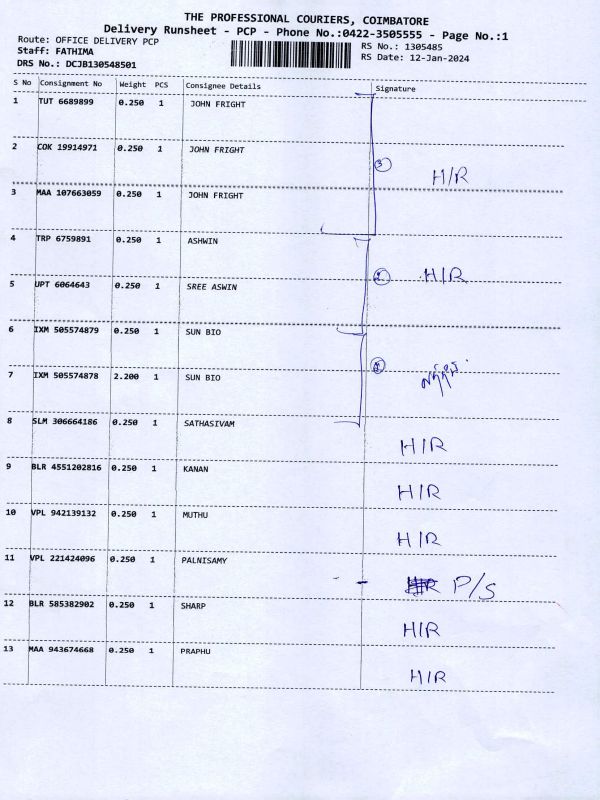 THE PROFESSIONAL COURIERS, COIMBATORE
Delivery Runsheet - PCP - Phone No.:0422-3505555 - Page No.:1
Route: OFFICE DELIVERY PCP
RS No.: 1305485
Staff: FATHIMA
RS Date: 12-Jan-2024
DRS No.: DCJB130548501
S No Consignment No Weight PCS Consignee Details Signature
1 TUT 6689899 0.250 1 JOHN FRIGHT
2 COK 19914971 0.250 1 JOHN FRIGHT
3 H/R
3 MAA 107663059 0.250 1 JOHN FRIGHT
4 TRP 6759891 0.250 1 ASHWIN
H/R
5 UPT 6064643 0.250 1 SREE ASWIN
6 IXM 505574879 0.250 1 SUN BIO
7 IXM 505574878 2.200 1 SUN BIO
8 SLM 306664186 0.250 1 SATHASIVAM
H/R
9 BLR 4551202816 0.250 1 KANAN
H/R
10 VPL 942139132 0.250 1 MUTHU
H/R
11 VPL 221424096 0.250 1 PALNISAMY
P/S
12 BLR 585382902 0.250 1 SHARP
H/R
13 MAA 943674668 0.250 1 PRAPHU
H/R